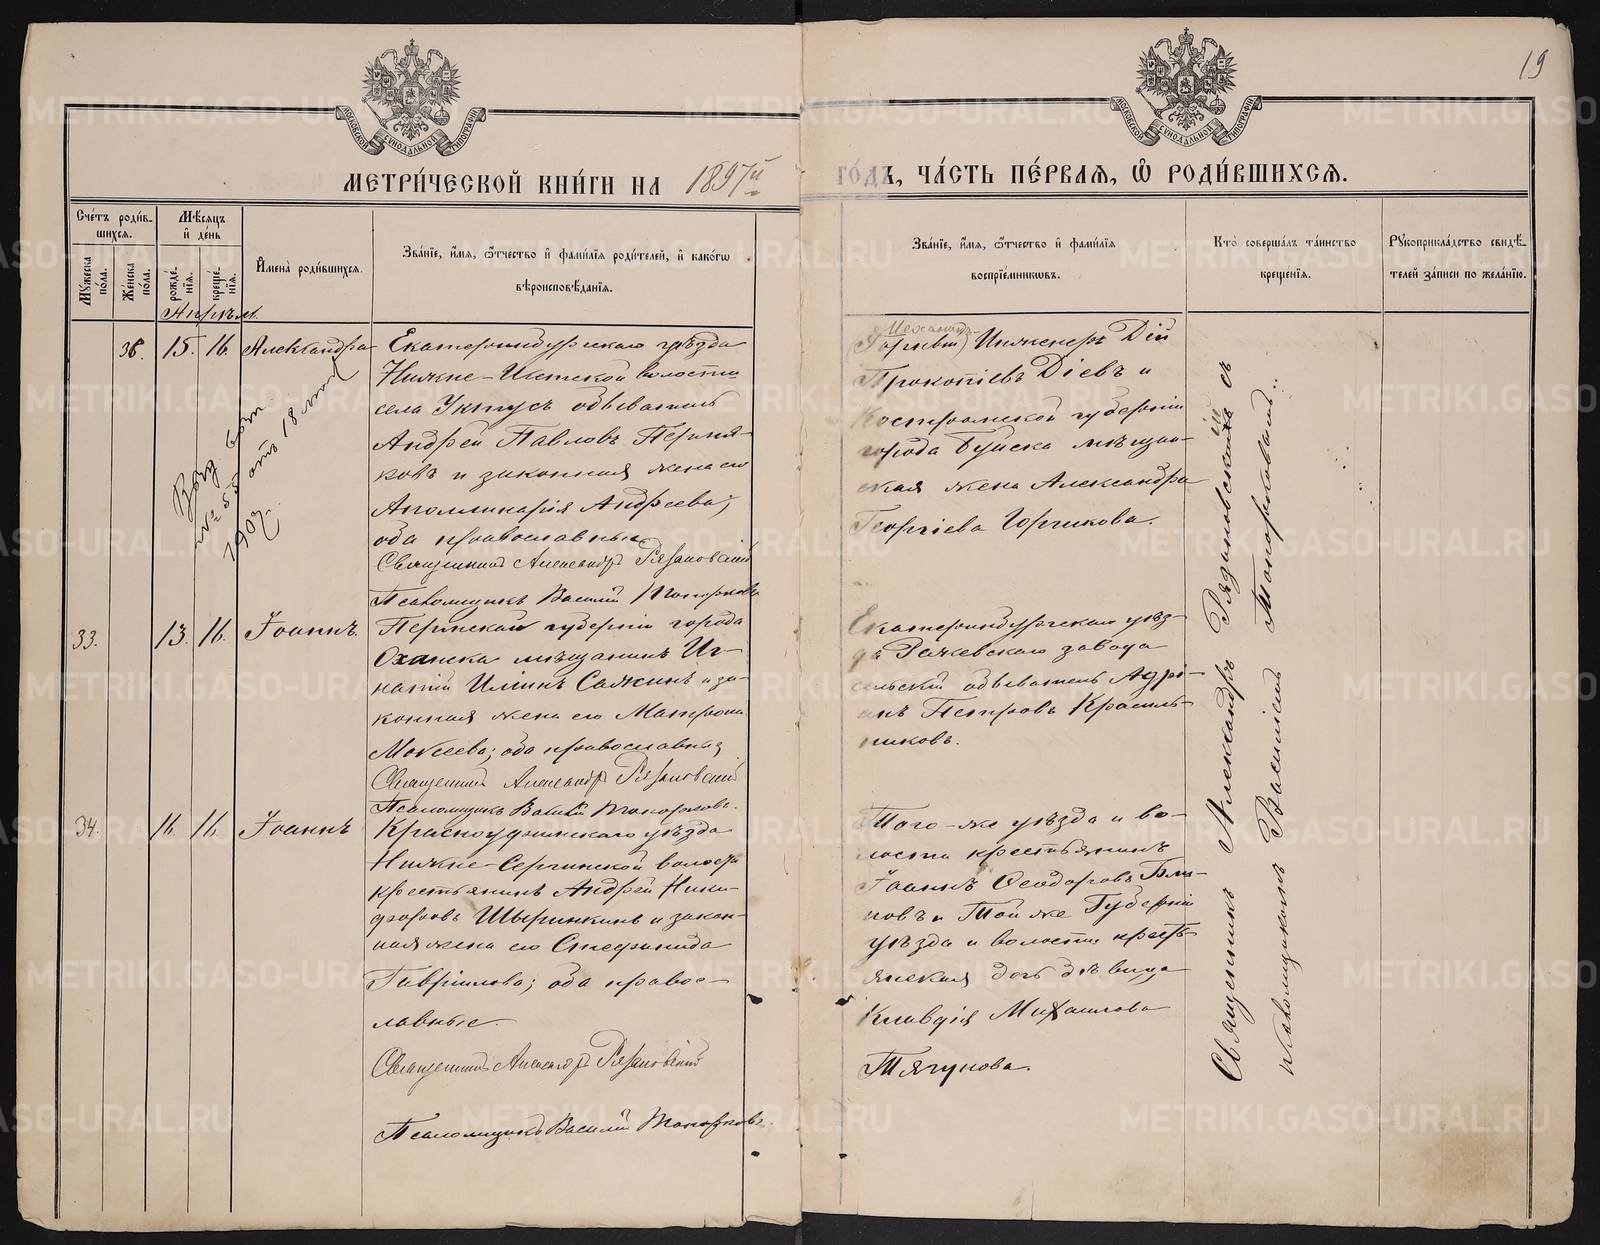 19
МОСКОВСКОЙ СУНОДАЛЬНОЙ ТИПОГРАФІИ
МОСКОВСКОЙ СУНОДАЛЬНОЙ ТИПОГРАФІИ
МЕТРИ́ЧЕСКОЙ КНИ́ГИ НА 1897й ГО́ДЪ, ЧА́СТЬ ПЕ́РВАЯ, Ѽ РОДИ́ВШИХСЯ.
Сче́тъ роди́в-
шихся.
Му́жеска по́ла.
Же́нска по́ла.
Мѣ́сяцъ и҆ де́нь
рожде́нїя.
креще́нїя.
И҆мена̀ роди́вшихся.
Зва́нїе, и҆́мя, ѻ҆́тчество и҆ фами́лїя роди́телей, и҆ како́гѡ
вѣроисповѣ́данїя.
Зва́нїе, и҆́мя, ѻ҆́тчество и҆ фами́лїя
воспрїе́мникѡвъ.
Кто̀ соверша́лъ та́инство
креще́нїя.
Рꙋкоприкла́дство свидѣ́-
телей за́писи по жела́нїю.
Апрѣль.
38. 15. 16. Александра
Екатеринбургскаго уѣзда
Нижне-Исетской волости
села Уктусъ обыватель
Андрей Павловъ Перми-
ковъ и законная жена его
Аполлинарія Андреева;
оба православные
Священникъ Александръ Рязановскій
Псаломщикъ Василій Топорковъ
№ 55 отъ 18
1907.
Инженеръ Дій
Прокопіевъ Діевъ и
Костромской губерніи
города Буйска мѣщан-
ская жена Александра
Георгіева Горчикова.
33. 13. 16. Іоаннъ.
Пермской губерніи города
Оханска мѣщанинъ Иг-
натій Илiинъ Сажинъ и за-
конная жена его Матрона
Мокеева; оба православны;
Священникъ Александръ Рязановскій
Псаломщикъ Василій Топорковъ.
Екатеринбургскаго уѣз-
да Режевскаго завода
сельскій обыватель Адрі-
анъ Петровъ Красиль-
никовъ.
34. 16. 16. Іоаннъ
Красноуфимскаго уѣзда
Нижне-Сергинской волости
крестьянинъ Андрей Ники-
форовъ Шыринкинъ и закон-
ная жена его Стефанида
Гавріилова; оба правос-
лавные.
Священникъ Александръ Рязановскій
Псаломщикъ Василій Топорковъ.
Того-же уѣзда и во-
лости крестьянинъ
Іоаннъ Ѳеодоровъ Бли-
новъ и Той же Губерніи
уѣзда и волости кресть-
янская дочь дѣвица
Клавдія Михаилова
Тягунова.
Священникъ Александръ Рязановскій съ
псаломщикомъ Василіемъ Топорковымъ.
METRIKI.GASO-URAL.RU